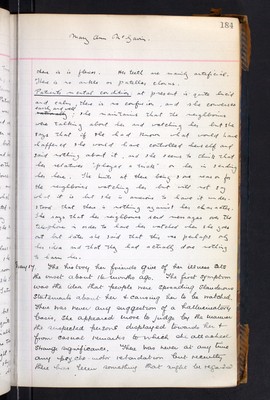 184
Mary Ann McGavin.
there is a plexor. No teeth are nearly artificial.
There is no ankle or patellar clonus.
Patient's mental condition at present is quite lucid
and calm, there is no confusion, and she converses
easily and well
rationally; she maintains that the neighbours
were talking about her and watching her, but she
says that if she had known what would have
happened she would have controlled herself and
said nothing about it, and she seems to think that
her relatives "played a trick" on her in sending
her here. She hints at there being some reason for
the neighbours watching her but will not say
what it is but she is anxious to have it under-
stood that there is nothing against her character.
She says that the neighbours send messages over the
telephone in order to have her watched when she goes
out but later she said that this was perhaps only
her idea and that they had actually done nothing
to harm her.
The history her friends give of her illness is
the onset about 18 months ago. The first symptom
was the idea that people were spreading slanderous
statements about her & causing her to be watched.
There was never any suggestion of a hallucinatory
basis, she appeared more to judge by the manner
the suspected persons displayed towards her &
from casual remarks to which she attached
strange significance. There was never at any time
any psycho-motor retardation but recently
there has been something that might be regarded